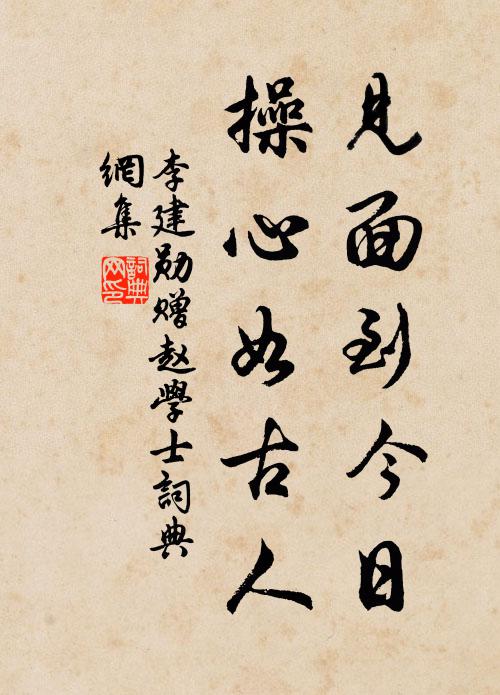 見面到今日
操心如古人
李建勋贈赵學士詞典
網集
詞典
网印